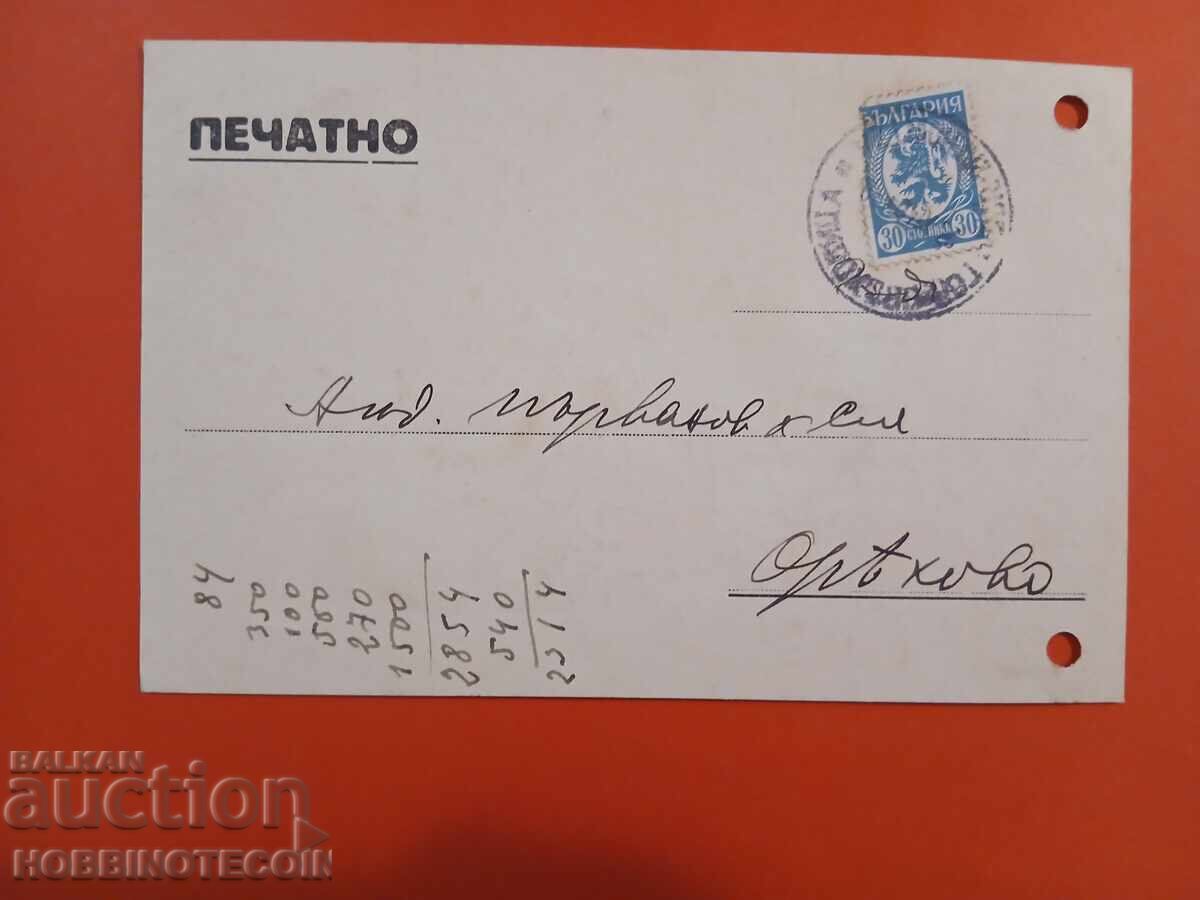 ПЕЧАТНО
БЪЛГАРИЯ
30 СТОТИНКИ 30
Анд. Първанов & Сия
Орѣхово
84
350
100
500
270
1500
2854
540
2314
BALKAN
auction
HOBBINOTECOIN